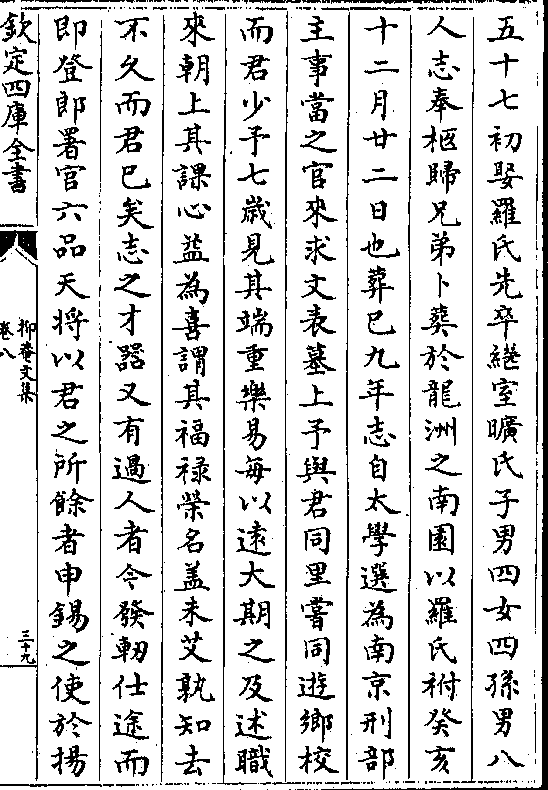 五十七初娶羅氏先卒繼室曠氏子男四女四孫男八
人志奉柩歸兄弟卜葬於龍洲之南園以羅氏祔癸亥
十二月廿二日也葬已九年志自太學選為南京刑部
主事當之官來求文表墓上予與君同里嘗同遊鄉校
而君少予七歲見其端重樂易每以遠大期之及述職
來朝上其課心益為喜謂其福祿榮名蓋未艾孰知去
不久而君已矣志之才器又有過人者今發軔仕途而
即登郎署官六品天將以君之所餘者申錫之使於揚
欽定四庫全書
抑菴文集
卷八
三十九